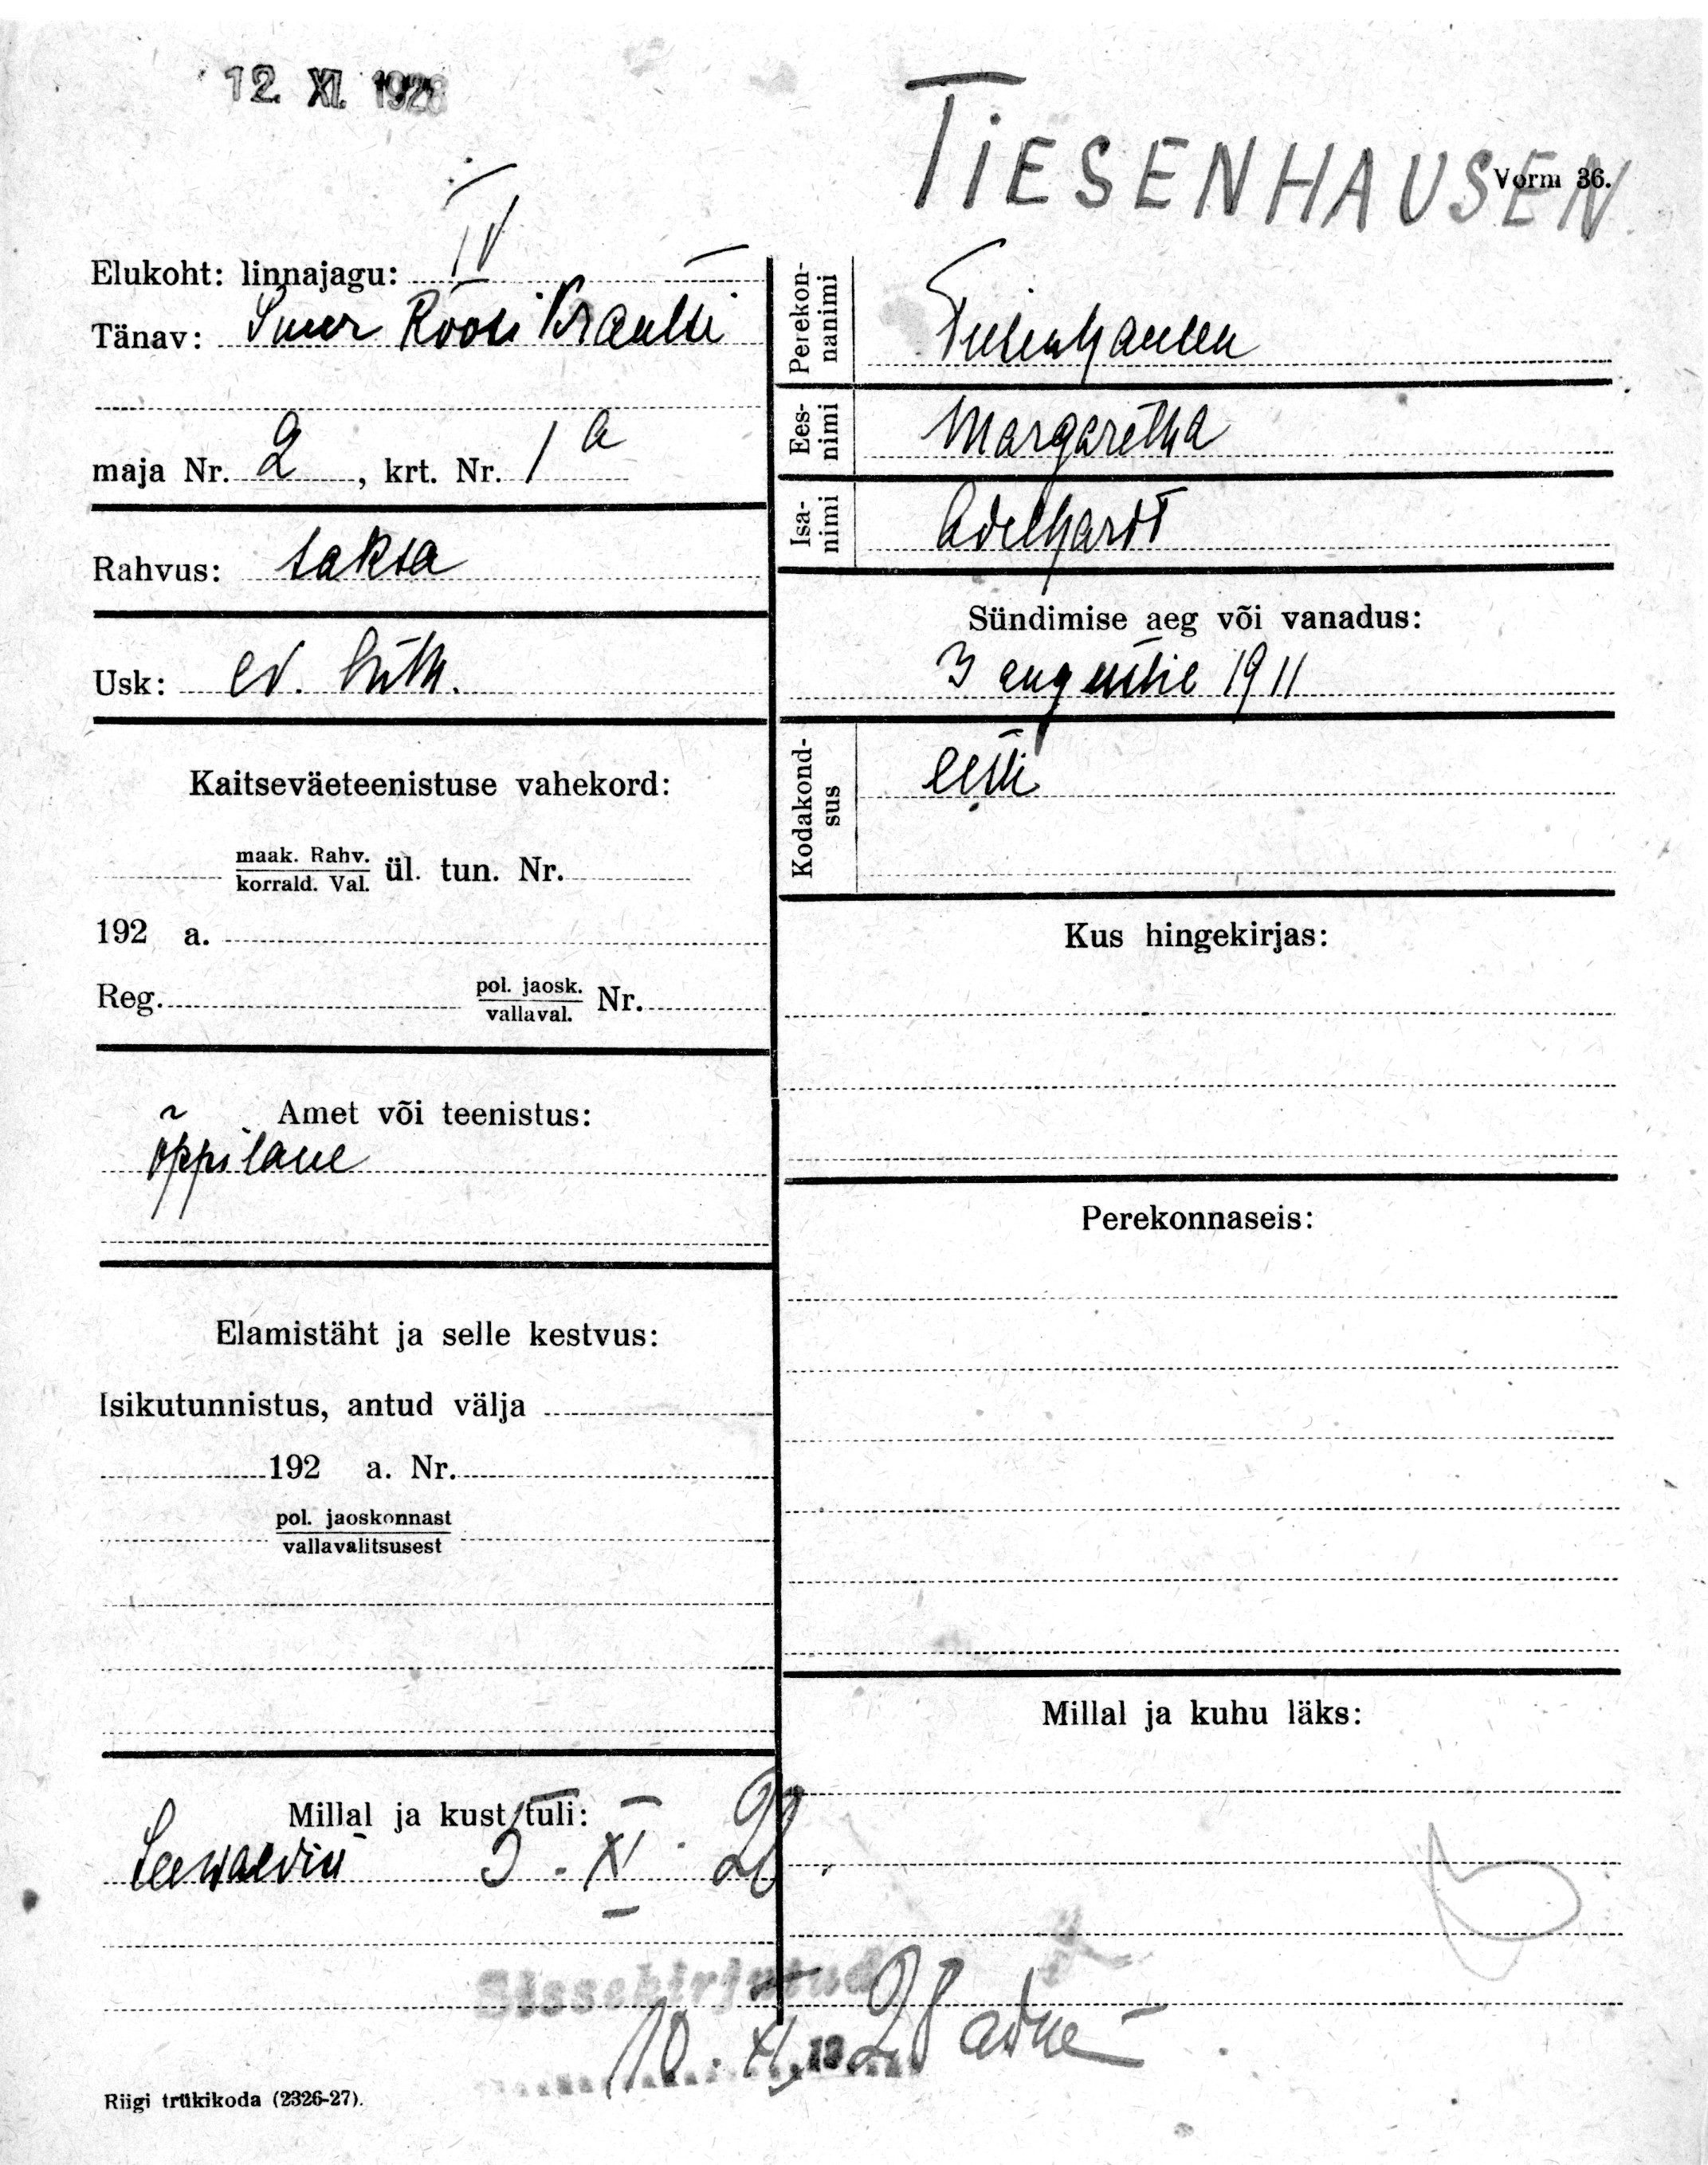 12. XI. 1928
TIESENHAUSEN
Vorm 36.
Elukoht: linnajagu: IV
Tänav: Suur Roosikrantsi
maja Nr. 2, krt. Nr. 1a
Rahvus: saksa
Usk: ev. luth.
Kaitseväeteenistuse vahekord:
maak. Rahv.
korrald. Val. ül. tun. Nr.
192 a.
Reg. pol. jaosk.
vallaval. Nr.
Amet või teenistus:
õppilane
Elamistäht ja selle kestvus:
Isikutunnistus, antud välja
192 a. Nr.
pol. jaoskonnast
vallavalitsusest
Millal ja kust tuli:
Seewaldist 5. XI. 28
Perekonnanimi
Tiesenhausen
Eesnimi
Margaretha
Isanimi
Adelhardt
Sündimise aeg või vanadus:
3 augustil 1911
Kodakondsus
eesti
Kus hingekirjas:
Perekonnaseis:
Millal ja kuhu läks:
Sissekirjutud
10. XI. 1928
Riigi trükikoda (2326-27).